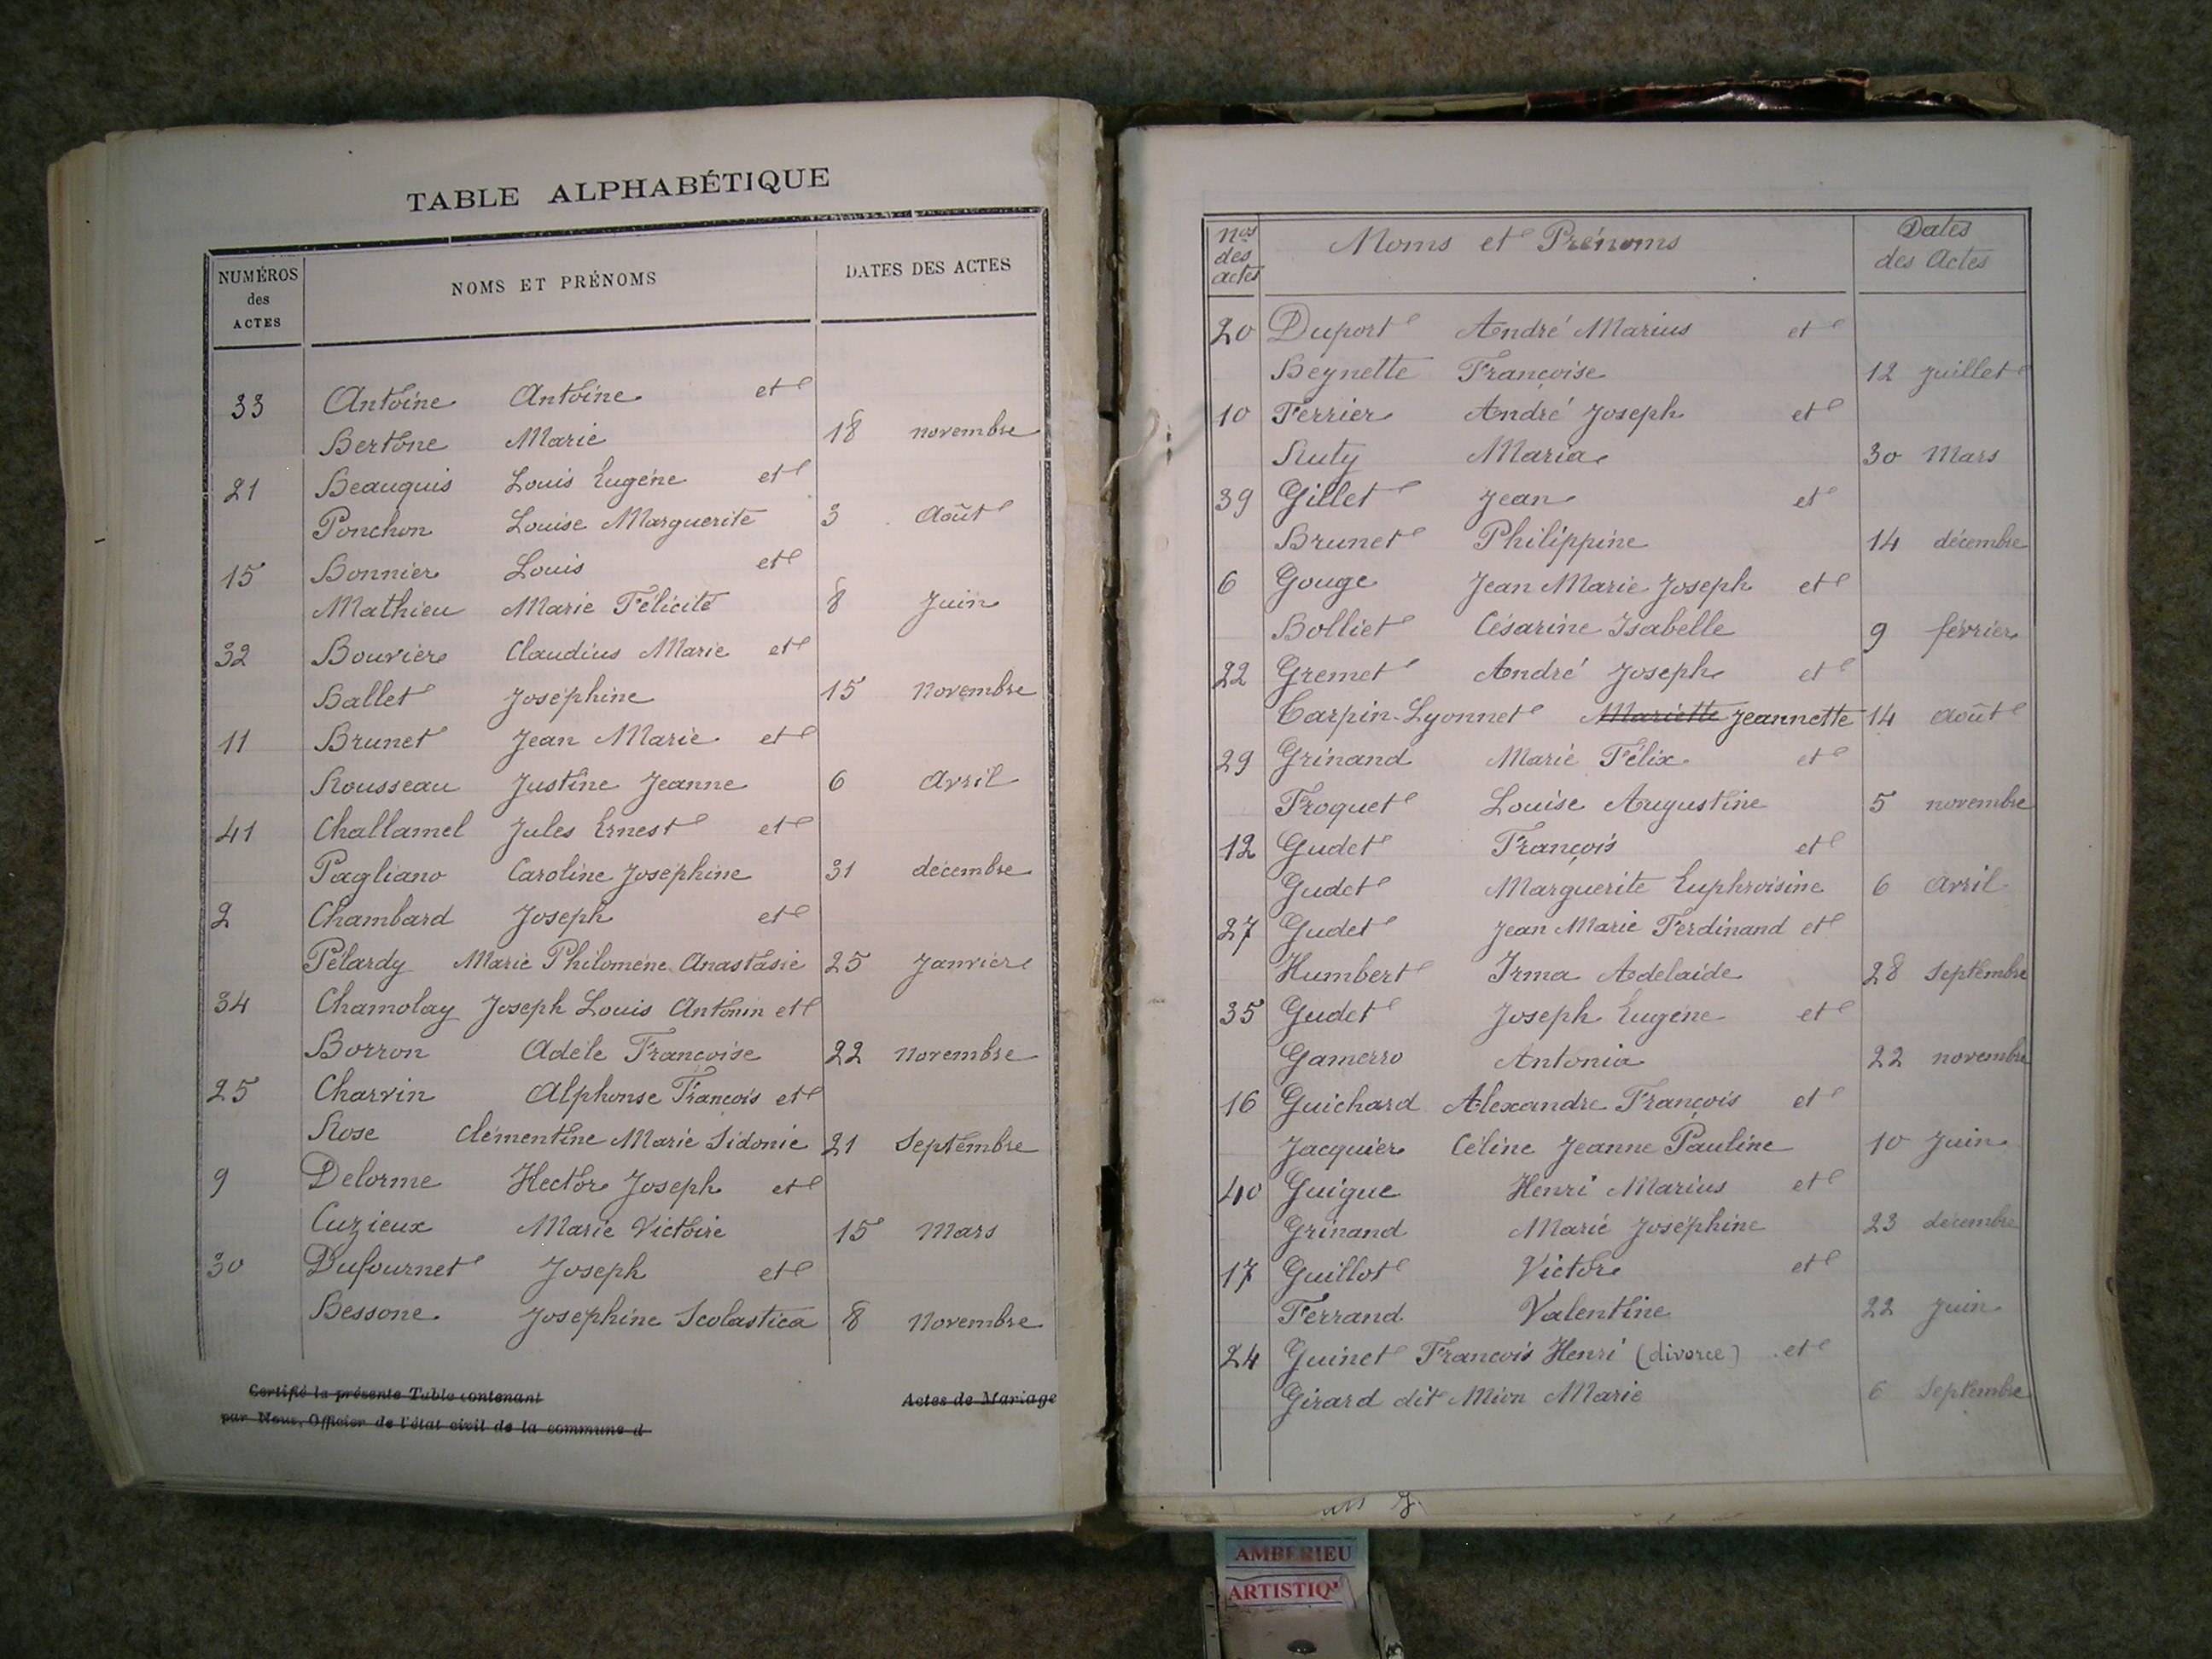 TABLE ALPHABÉTIQUE
NUMÉROS
des
ACTES
NOMS ET PRÉNOMS
DATES DES ACTES
33 Antoine Antoine et
Bertone Marie 18 novembre
21 Beauquis Louis Eugène et
Ponchon Louise Marguerite 3 Août
15 Bonnier Louis et
Mathieu Marie Félicité 8 Juin
32 Bouvier Claudius Marie et
Ballet Joséphine 15 Novembre
11 Brunet Jean Marie et
Rousseau Justine Jeanne 6 Avril
41 Challamel Jules Ernest et
Pagliano Caroline Joséphine 31 décembre
2 Chambard Joseph et
Pélardy Marie Philomène Anastasie 25 Janvier
34 Chamolay Joseph Louis Antonin et
Borron Adèle Françoise 22 Novembre
25 Charvin Alphonse François et
Rose Clémentine Marie Sidonie 21 Septembre
9 Delorme Hector Joseph et
Cuzieux Marie Victoire 15 Mars
30 Dufournet Joseph et
Bessone Joséphine Scolastica 8 Novembre
Certifié la présente Table contenant Actes de Mariage
par Nous, Officier de l'état civil de la commune d
Nos
des
actes
Noms et Prénoms
Dates
des Actes
20 Duport André Marius et
Beynette Françoise 12 Juillet
10 Ferrier André Joseph et
Ruty Maria 30 Mars
39 Gillet Jean et
Brunet Philippine 14 décembre
6 Gouge Jean Marie Joseph et
Bolliet Césarine Isabelle 9 février
22 Gremet André Joseph et
Carpin-Lyonnet Mariette Jeannette 14 Août
29 Grinand Marie Félix et
Froquet Louise Augustine 5 novembre
12 Gudet François et
Gudet Marguerite Euphroisine 6 Avril
27 Gudet Jean Marie Ferdinand et
Humbert Irma Adelaïde 28 Septembre
35 Gudet Joseph Eugène et
Gamerro Antonia 22 novembre
16 Guichard Alexandre François et
Jacquier Céline Jeanne Pauline 10 Juin
40 Guigue Henri Marius et
Grinand Marie Joséphine 23 décembre
17 Guillot Victor et
Ferrand Valentine 22 Juin
24 Guinet François Henri (divorce) et
Girard dit Mion Marie 6 Septembre
AMBERIEU
ARTISTIQ